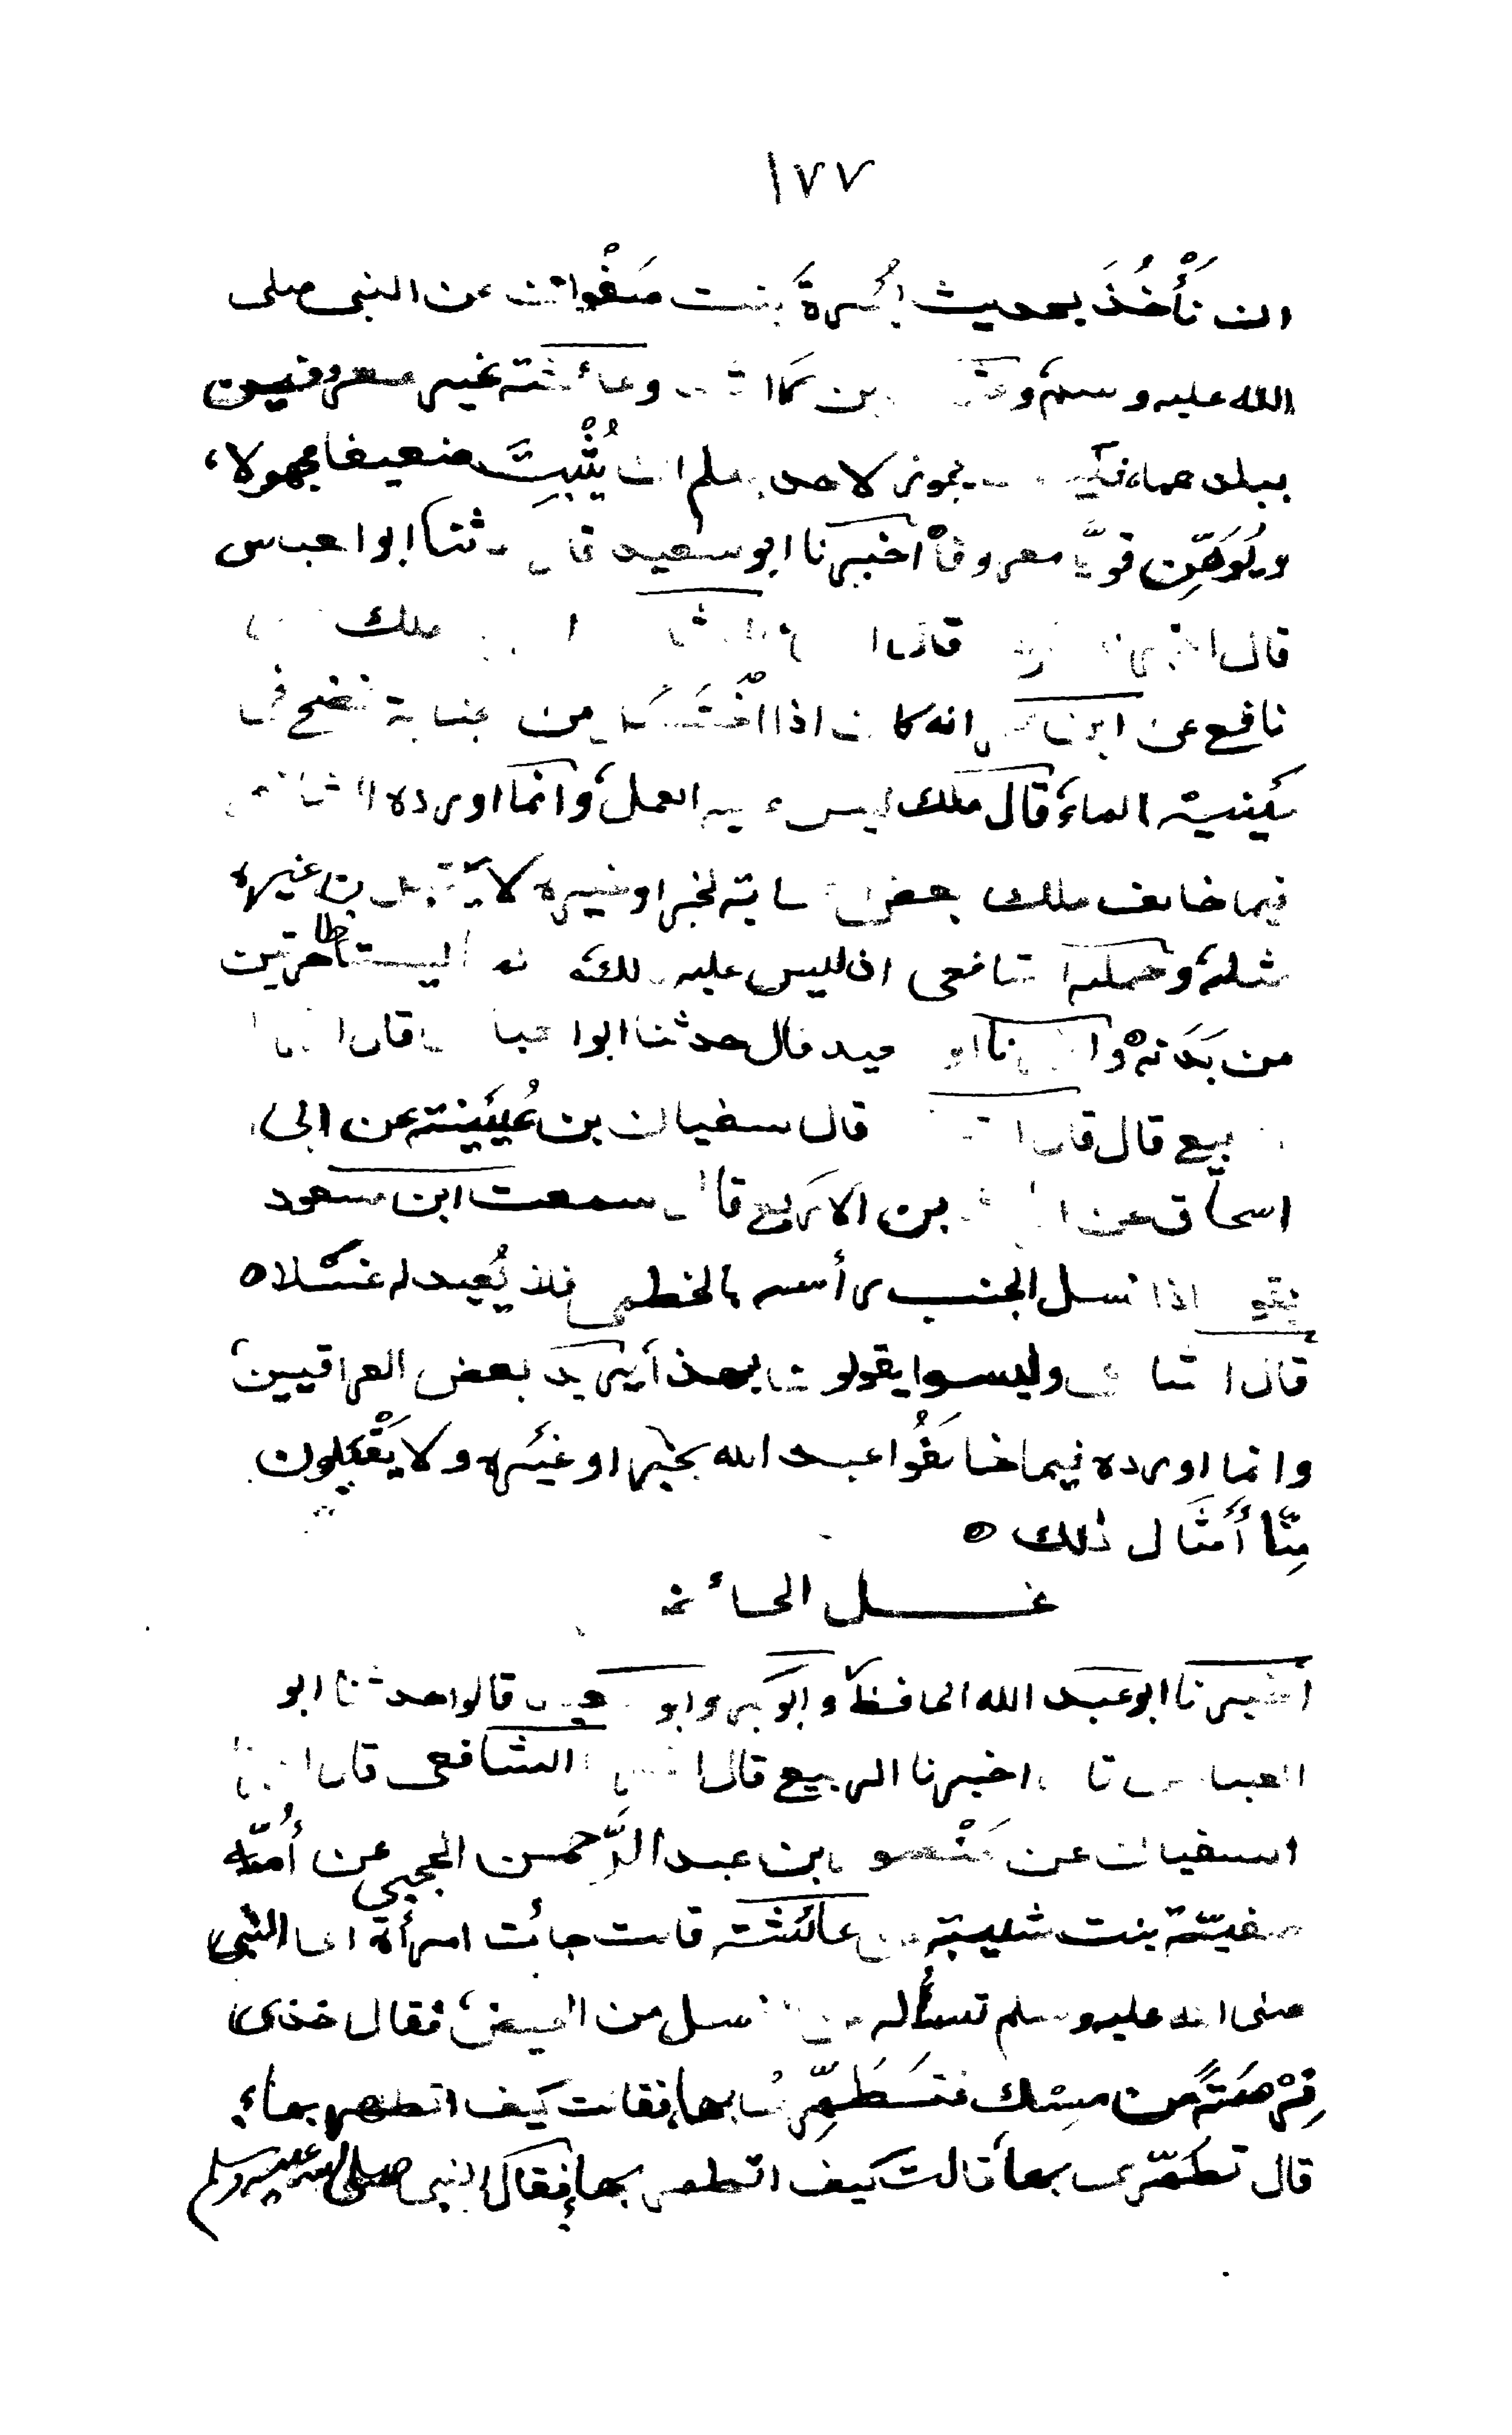 ١٧٧
ان نَأْخُذَ بحديث بُسرةَ بنت صَفْوان عن النبى صلى
الله عليه وسلم و بن وعائشة غير معروفين
ببلدهما فكيف يجوز لاحد يعلم ان يُثْبِتَ ضعيفا مجهولا،
ويُوَهِّن قويًّا معروفاً اخبرنا ابو سعيد قال حدثنا ابو العباس
قال قال ملك
نافع عن ابن انه كان اذا اغْتَسَل من جنابة نضح فى
عَينيه الماءَ قال ملك ليس عليه العمل وانما اورده الشافعى
فيما خالف ملك بعض الصحابة لخبر او غيره لا
مثله وحمله الشافعى ان ليس عليه ذلك لانه ليستا ظاهرتين
من بَدَنه واخبرنا ابو سعيد قال حدثنا ابو العباس قال
الربيع قال قال قال سفيان بن عُيَيْنة عن ابى
اسحاق عن بن الازمع قال سمعت ابن مسعود
يقول اذا غسل الجنب رأسه بالخطمى فلا يُعيد له غسلا ٥
قال الشافعى وليسوا يقولون بهذا يريد بعض العراقيين
وانما اورده فيما خالفُوا عبد الله بخبر او غيره ولا يَقْبلون
مِنَّا أمثَال ذلك ٥
غسل الحائض
أخبرنا ابو عبد الله الحافظ وابو بكر وابو سعيد قالوا حدثنا ابو
العباس قال اخبرنا الربيع قال اخبرنا الشافعى قال اخبرنا
سفيان عن مَنْصور بن عبد الرَّحمن الحجبى عن أُمّه
صفيّة بنت شيبة عن عائشة قالت جائت امرأة الى النبى
صلى الله عليه وسلم تسأله عن الغسل من الحيض فقال خذى
فِرْصَةً من مسْك فتَطَهِّرى بها فقالت كيف اتطهر بها،
قال تطَهّرى بها قالت كيف اتطهر بها فقال النبى صلى الله عليه وسلم